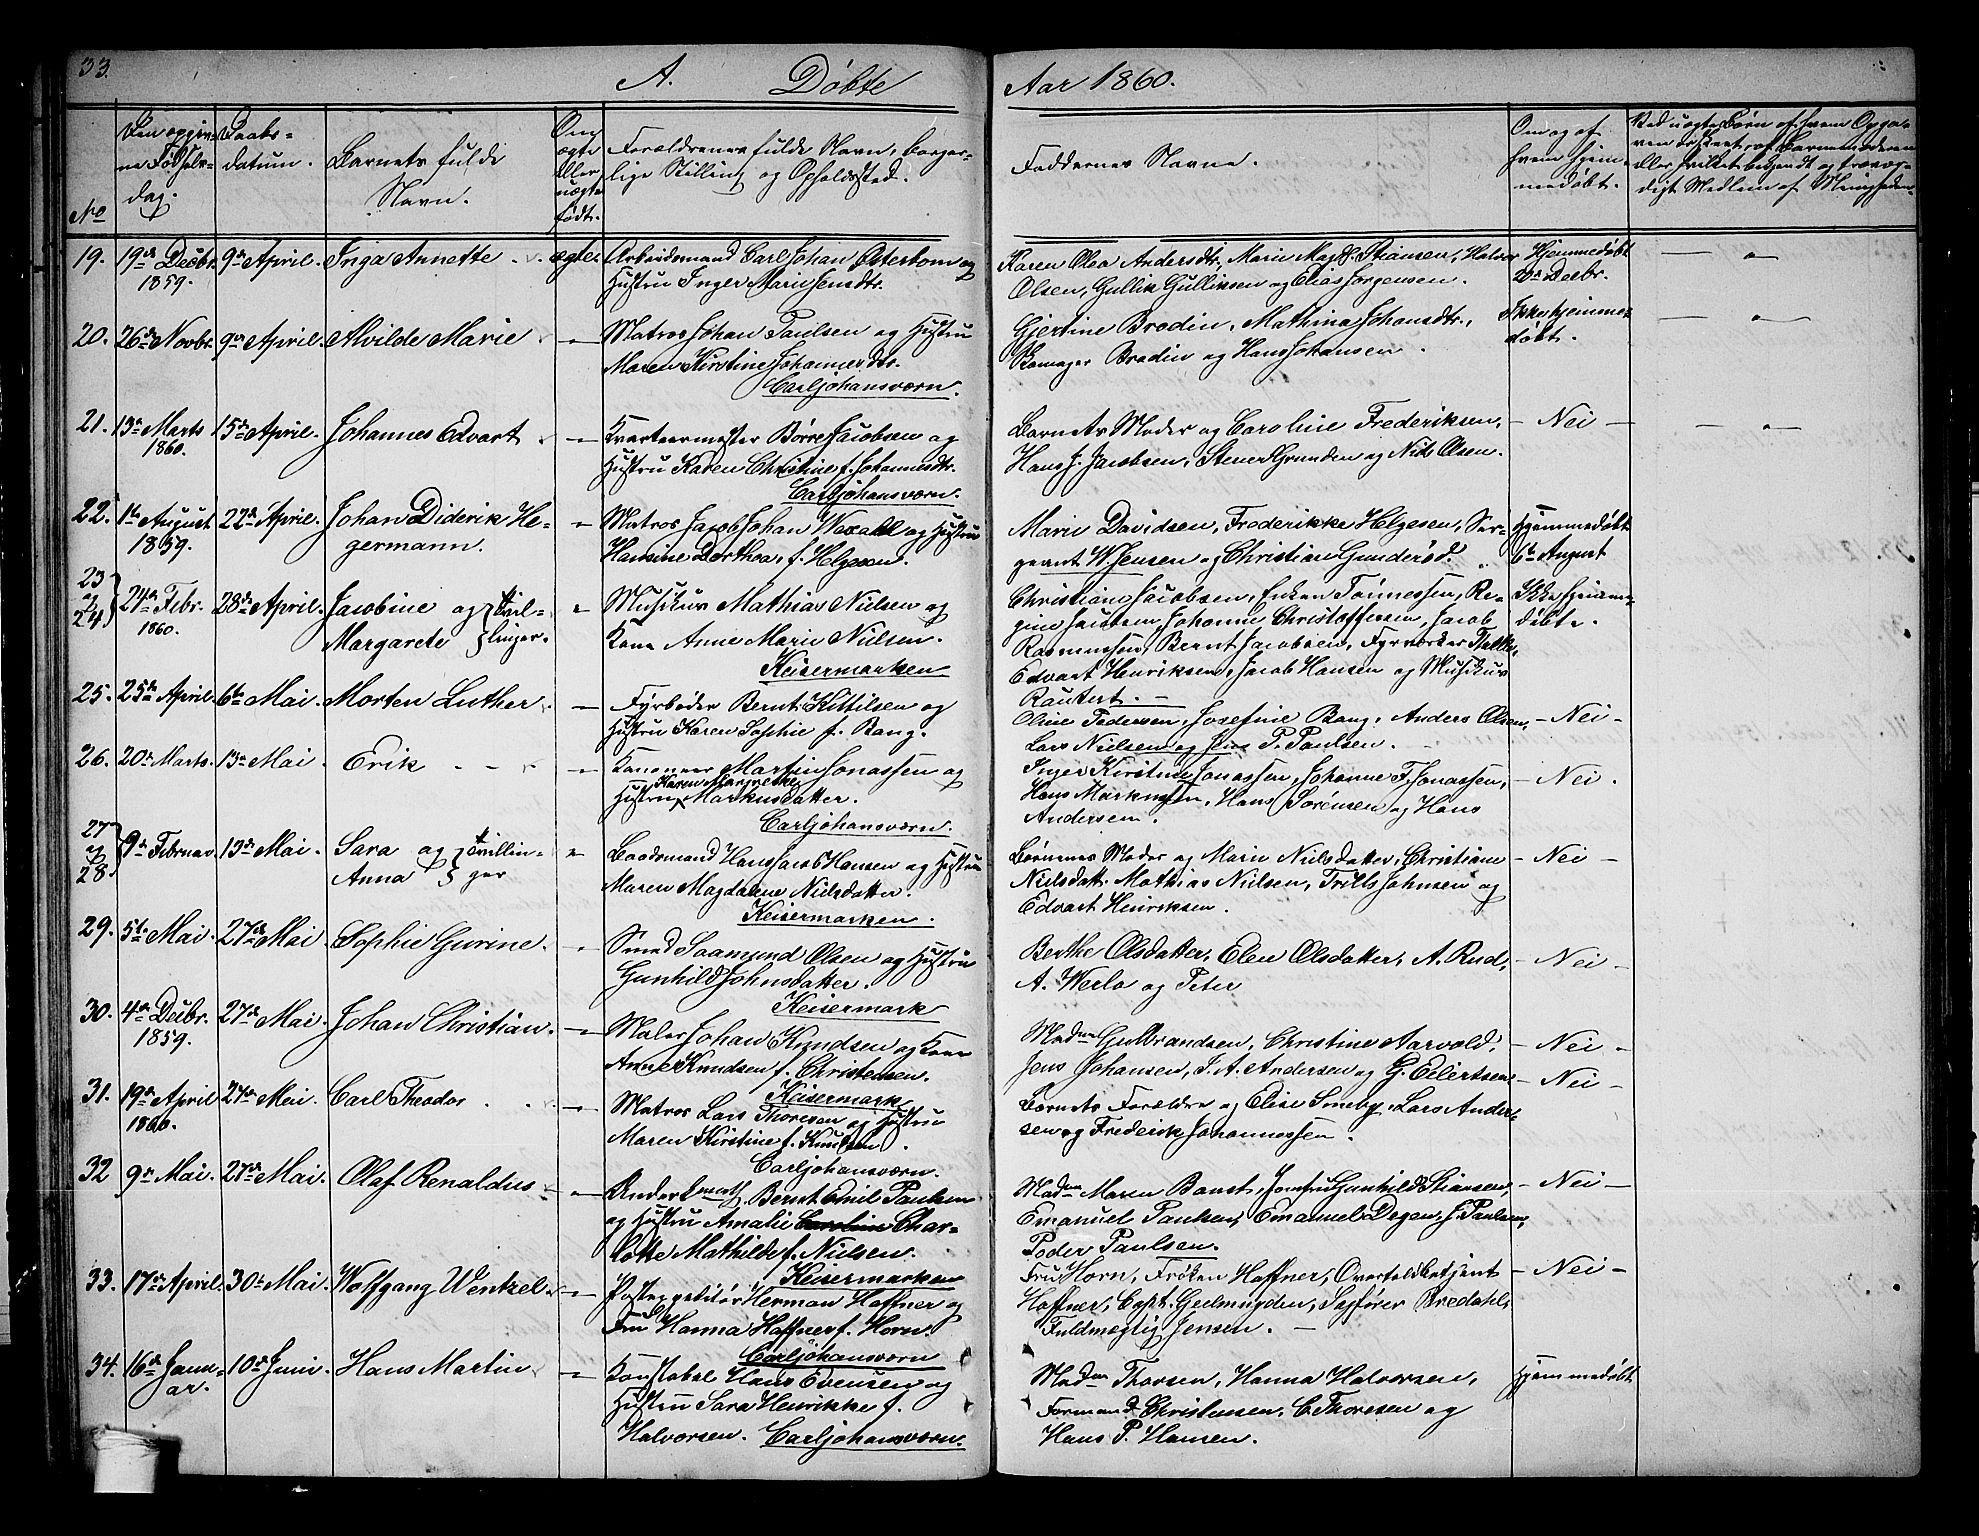 33.
A. Døbte
Aar 1860.
No
Den opgiv-
ne Fødsels-
dag.
Daabs-
datum.
Barnets fulde
Navn.
Om
ægte
eller
uægte
født.
Forældrenes fulde Navn, borger-
lige Stilling og Opholdssted.
Faddernes Navne.
Om og af
hvem hjem-
medøbt.
Ved uægte Børn af hvem Opga-
ven er skeet, af Barnemoderen
eller hvilket bekjendt og trovær-
digt Medlem af Menigheden.
19. 19de Decbr. 9de April. Inga Annette ægte. Arbeidsmand Carl Johan Østerbom og
1859. Hustru Inger Marie Jensdtr.
Karen Olea Andersdtr. Marie Magd. Stiansen, Halvor
Olsen, Gullik Gulliksen og Elias Jørgensen.
Hjemmedøbt
Decbr.
20. 26de Novbr. 9de April. Alvilde Marie - " - Matros Johan Paulsen og Hustru
Maren Kirstine Johannesdtr.
Carljohansværn.
Gjertine Brodin, Mathina Johansdtr.,
Brodin og Hans Johansen.
Ikke hjemme-
døbt.
21. 13de Marts 15de April. Johannes Edvart - " - Kvarteermester Børre Jacobsen og
1860. Hustru Karen Christine f. Johannesdtr.
Carljohansværn.
Barnets Moder og Caroline Frederiksen,
Hans J. Jacobsen, Stener Grunden og Nils Olsen.
- Nei -
22. 1ste August 22de April. Johan Diderik He- - " - Matros Jacob Johan Wexahl og Hustru
1859. germann. Hansine Dorthea, f. Helgesen.
Marie Davidsen, Frederikke Helgesen, Ser-
geant W. Jensen og Christian Gunderød.
Hjemmedøbt
6te August
23
og
24 24de Febr. 28de April. Jacobine og } Tvil- - " - Musikus Mathias Nielsen og
1860. Margarete } linger. Kone Anne Marie Nielsen.
Keisermarken
Christiane Jacobsen, Enken Tønnessen, Re-
gine Jacobsen, Johanne Christoffersen, Jacob
Rasmussen, Bernt Jacobsen, Fyrværker
Edvart Henriksen, Jacob Hansen og Musikus
Rautert. -
Ikke hjemme-
døbt.
25. 25de April. 6te Mai. Morten Luther - Fyrbøder Bernt Kittilsen og
Hustru Karen Sophie f. Bang.
Oline Pedersen, Josefine Bang, Anders Olsen,
Lars Nielsen og Jens P. Paulsen.
- Nei -
26. 20de Marts. 13de Mai. Erik - - - " - Kanoneer Martin Jonassen og
Karen Margrethe
Hustru Markusdatter.
Carljohansværn.
Inger Kirstine Jonassen, Johanne F. Jonassen,
Hans Markussen, Hans Sørensen og Hans
Andersen.
- Nei.
27
og
28 9de Februar. 13de Mai. Sara og } Tvillin- - " - Baadsmand Hans Jacob Hansen og Hustru
Anna } ger Maren Magdalene Nielsdatter.
Keisermarken.
Børnenes Moder og Marie Nielsdatter, Christiane
Nielsdatt. Mathias Nielsen, Troels Johnsen og
Edvart Henriksen.
- Nei -
29. 5te Mai. 27de Mai. Sophie Gurine. - " - Smed Saamund Olsen og Hustru
Gunhild Johnsdatter.
Keisermark
Berthe Olsdatter, Elen Olsdatter, A. Rud,
A. Werlo og Peter
- Nei -
30. 4de Decbr. 27de Mai. Johan Christian. - " - Maler Johan Knudsen og Kone
1859. Anne Knudsen f. Christensen.
Keisermark
Madme Gulbrandsen, Christine Aarvold,
Jens Johansen, S. A. Andersen og G. Eilertsen
- Nei -
- Nei -
31. 19de April 27de Mai. Carl Theodor - " - Matros Lars Thoresen og Hustru
1860. Maren Kirstine f. Knudsen.
Carljohansværn.
Barnets Forældre og Elise Smeby, Lars Ander-
sen og Frederik Johannessen.
32 9de Mai. 27de Mai. Olaf Renaldus - " - Underkmath. Bernt Emil Paulsen
og Hustru Amalie Caroline Char-
lotte Mathilde f. Nielsen.
Keisermarken
Madme Maren Banet, Jomfru Gunhild Stiansen,
Emanuel Paulsen, Emanuel Degen, J. Paulsen,
Peder Paulsen.
- Nei -
33. 17de April. 30te Mai. Wolfgang Wentzel. - " - Postexpeditør Herman Haffner og
Fru Hanna Haffner f. Horn.
Carljohansværn
Fru Horn, Frøken Haffner, Overtoldbetjent
Haffner, Capt. Geelmuyden, Sagfører Bredahl,
Fuldmægtig Jensen. -
- Nei -
34. 16de Janu- 10de Juni. Hans Martin - " - Konstabel Hans Evensen og
ar. Hustru Sara Henrikke f.
Halvorsen. Carljohansværn.
Madme Thorsen, Hanna Halvorsen,
Formand Christensen, C. Thoresen og
Hans P. Hansen.
Hjemmedøbt